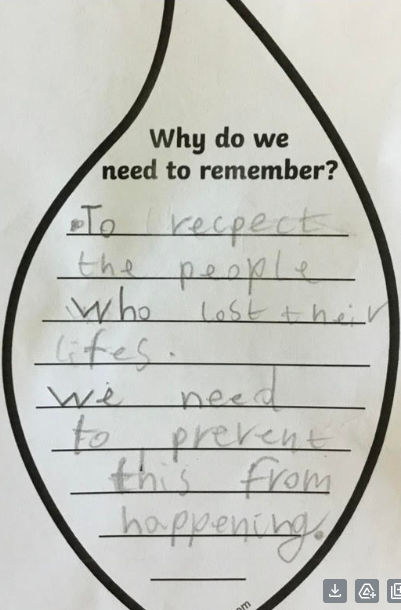 Why do we
need to remember?
To recpect
the people
who lost their
lifes.
we need
to prevent
this from
happening.
om